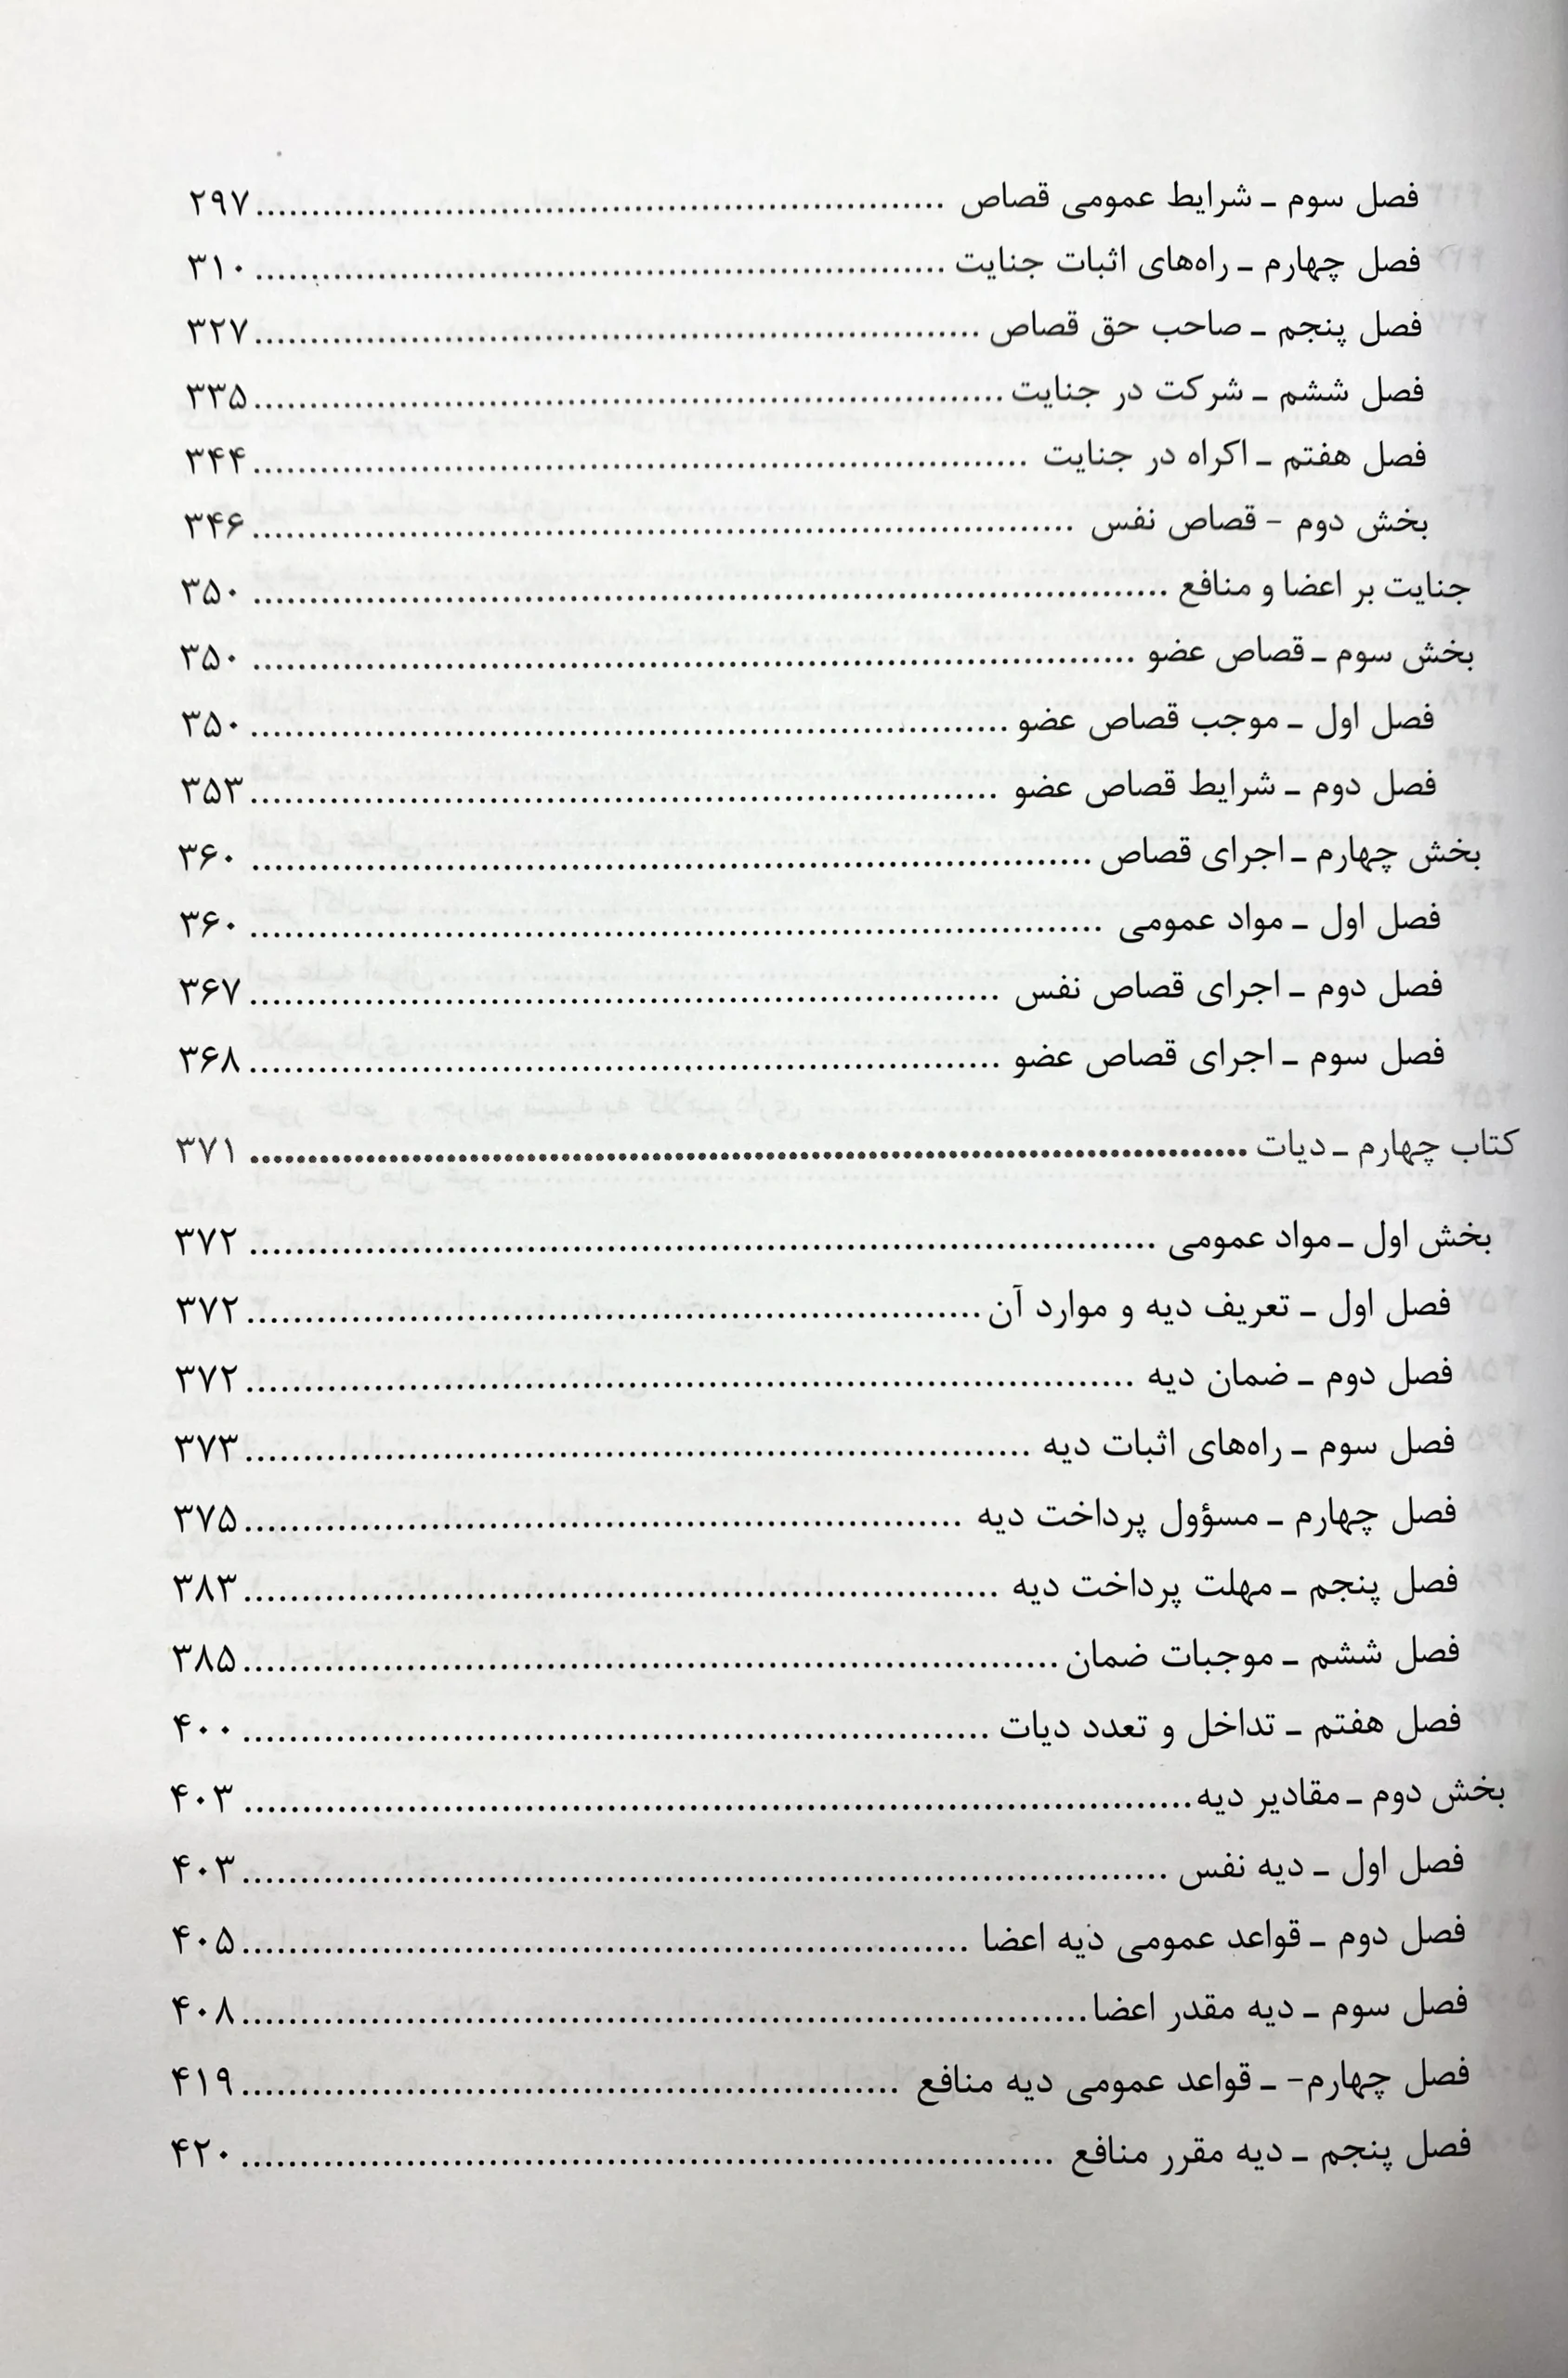 فصل سوم ـ شرایط عمومی قصاص ........................................ ۲۹۷
فصل چهارم ـ راه‌های اثبات جنایت ........................................ ۳۱۰
فصل پنجم ـ صاحب حق قصاص ........................................ ۳۲۷
فصل ششم ـ شرکت در جنایت ........................................ ۳۳۵
فصل هفتم ـ اکراه در جنایت ........................................ ۳۴۴
بخش دوم - قصاص نفس ........................................ ۳۴۶
جنایت بر اعضا و منافع ........................................ ۳۵۰
بخش سوم ـ قصاص عضو ........................................ ۳۵۰
فصل اول ـ موجب قصاص عضو ........................................ ۳۵۰
فصل دوم ـ شرایط قصاص عضو ........................................ ۳۵۳
بخش چهارم ـ اجرای قصاص ........................................ ۳۶۰
فصل اول ـ مواد عمومی ........................................ ۳۶۰
فصل دوم ـ اجرای قصاص نفس ........................................ ۳۶۷
فصل سوم ـ اجرای قصاص عضو ........................................ ۳۶۸
کتاب چهارم ـ دیات ........................................ ۳۷۱
بخش اول ـ مواد عمومی ........................................ ۳۷۲
فصل اول ـ تعریف دیه و موارد آن ........................................ ۳۷۲
فصل دوم ـ ضمان دیه ........................................ ۳۷۲
فصل سوم ـ راه‌های اثبات دیه ........................................ ۳۷۳
فصل چهارم ـ مسؤول پرداخت دیه ........................................ ۳۷۵
فصل پنجم ـ مهلت پرداخت دیه ........................................ ۳۸۳
فصل ششم ـ موجبات ضمان ........................................ ۳۸۵
فصل هفتم ـ تداخل و تعدد دیات ........................................ ۴۰۰
بخش دوم ـ مقادیر دیه ........................................ ۴۰۳
فصل اول ـ دیه نفس ........................................ ۴۰۳
فصل دوم ـ قواعد عمومی دیه اعضا ........................................ ۴۰۵
فصل سوم ـ دیه مقدر اعضا ........................................ ۴۰۸
فصل چهارم- ـ قواعد عمومی دیه منافع ........................................ ۴۱۹
فصل پنجم ـ دیه مقرر منافع ........................................ ۴۲۰